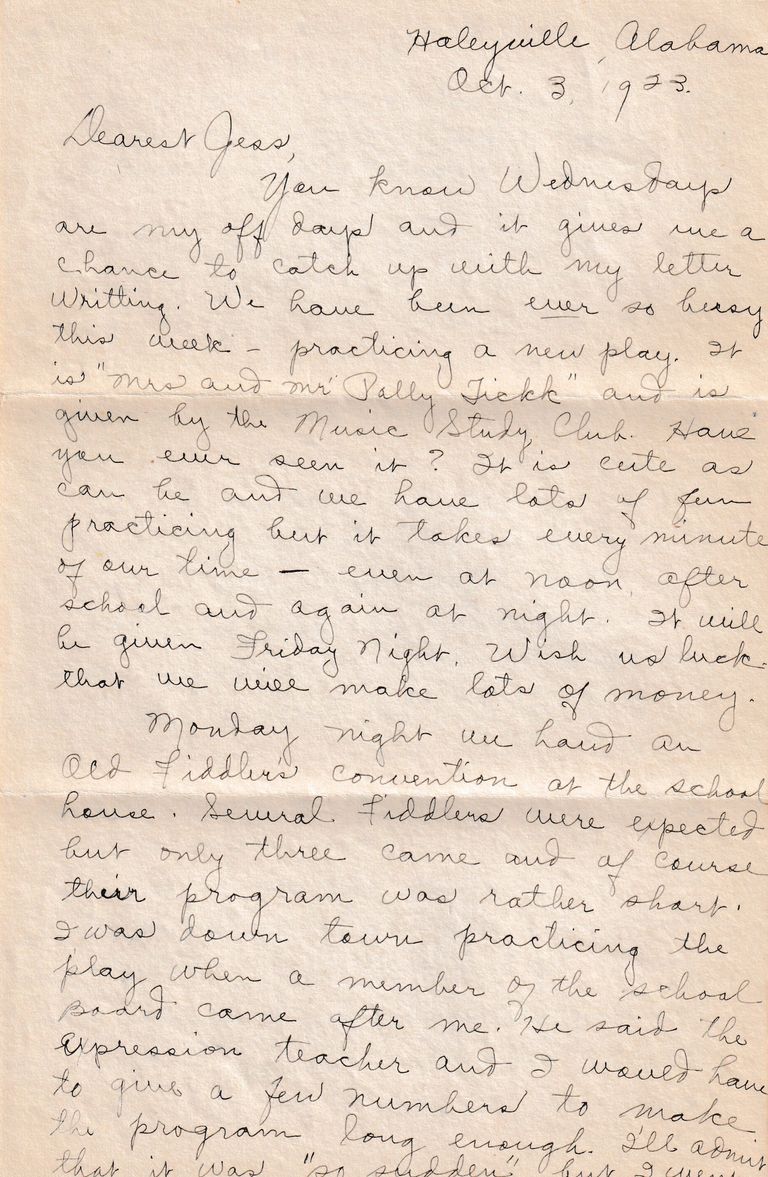 Haleyville, Alabama
Oct. 3, 1923.
Dearest Jess,
You know Wednesdays
are my off days and it gives me a
chance to catch up with my letter
writting. We have been ever so busy
this week – practicing a new play. It
is "Mrs and Mr Polly Tickk" and is
given by the Music Study Club. Have
you ever seen it? It is cute as
can be and we have lots of fun
practicing but it takes every minute
of our time – even at noon, after
school and again at night. It will
be given Friday Night. Wish us luck
that we will make lots of money.
Monday night we haud an
Old Fiddler's convention at the school
house. Several Fiddlers were expected
but only three came and of course
their program was rather short.
I was down town practicing the
play when a member of the school
Board came after me. He said the
expression teacher and I would have
to give a few numbers to make
the program long enough. I'll admit
that it was "so sudden" but I went